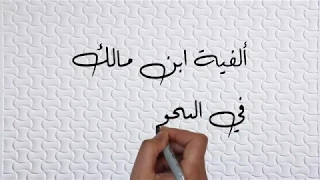 ألفية ابن مالك
في النحو